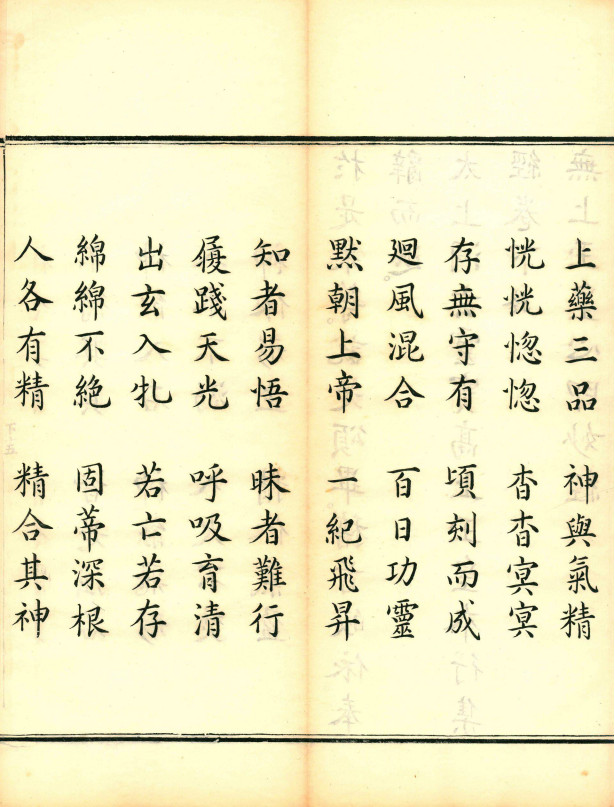 上藥三品　神與氣精
恍恍惚惚　杳杳冥冥
存無守有　頃刻而成
廻風混合　百日功靈
默朝上帝　一紀飛昇
知者易悟　昧者難行
履踐天光　呼吸育清
出玄入牝　若亡若存
綿綿不絕　固蒂深根
人各有精　精合其神